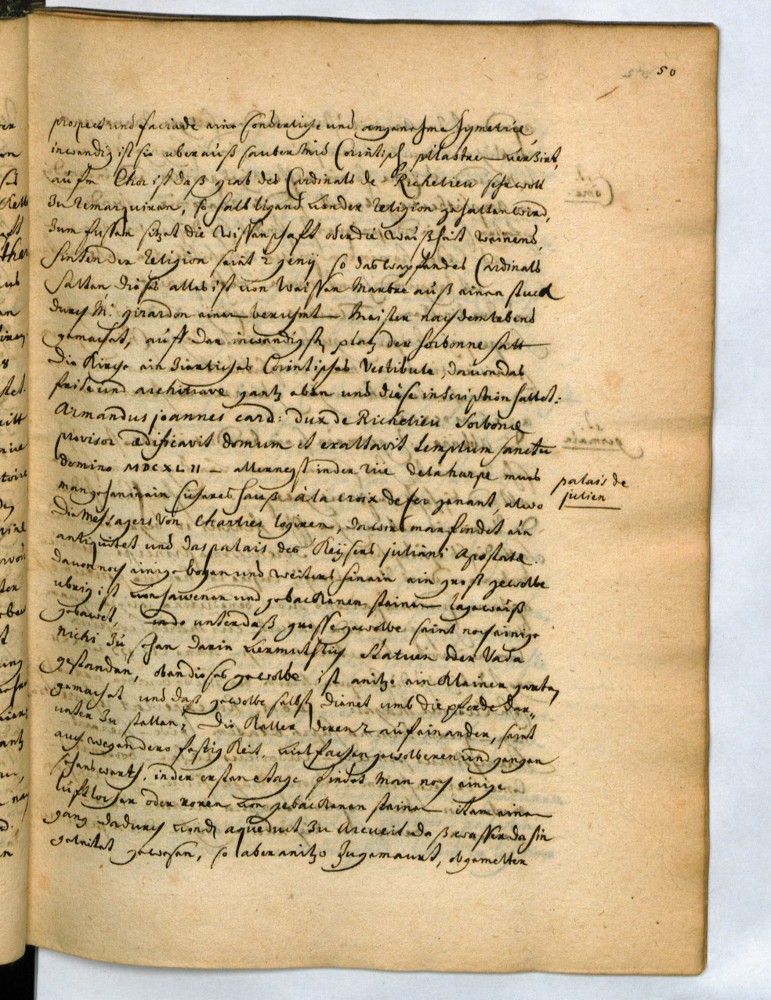 50
prospect und faciade eine sonderliche und angenehme Symetrie
inwendig ist sie uberauß sauber mit Corintisch pilastre verZiert,
aufm Chor ist daß grab des Cardinals de Richelieu sehr woll
Zu remarquiren, so halb ligend von der religion gehalten wird,
Zum füssen sitzet die Wissenschaft oder die weißheit weinend,
hinten der religion seint 2 genij so das wapfen des Cardinals
halten dieses alles ist von weissen Marbre auß einem stuck
durch Mr girardon einen berumt Meister nach dem lebend
gemachet, auff den inwendigst platz der sorbonne hatt
die Kirche ein Zierliches Corintisches Vestibule, davon das
frise und architrave gantz eben und diese inscription hattet:
Armandus joannes card: dux de Richelieu Sorbonæ
provisor ædificavit domum et exaltavit templum sanctu
domino MDCXLII allernegst in der rue de la harpe mus
man gehen in ein sicheres hauß à la croix de fer genant, alwo
die Messagers von Chartres logiren, darin man findet ein
antiquitet und das palais des Keysers juliani Apostata
davon noch einige bogen und weiters hinein ein groß gewolbe
ubrig ist von hawenen und gebackenen steinen lagweiß
gebawet, in do unter daß grosse gewolbe seint noch einige
nichi Zu sehen darin vermuthlich statuen oder Vasa
gestanden, oben dieses gewolbe ist anitzo ein kleiner garten
gemachet und daß gewolbe selbst dienet umb die pferde dar„
unter Zu stallen, die Keller deren 2 aufeinander, seint
auch wegen dero festigkeit, vielfachen gewolberen und gengen
sehenswerth, in der ersten etage findet man noch einige
luftlocher oder roren von gebackenen steinen item einen
gang dadurch von dem aqueduct Zu Arcueil daß wasser dahin
geleitet gewesen, so aber anitzo Zugemaurt, obgemelten
palais de
julien